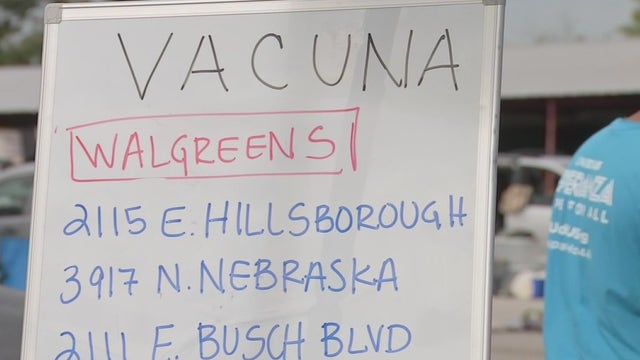 VACUNA
WALGREENS
2115 E. HILLSBOROUGH
3917 N. NEBRASKA
2111 E. BUSCH BLVD
ALL